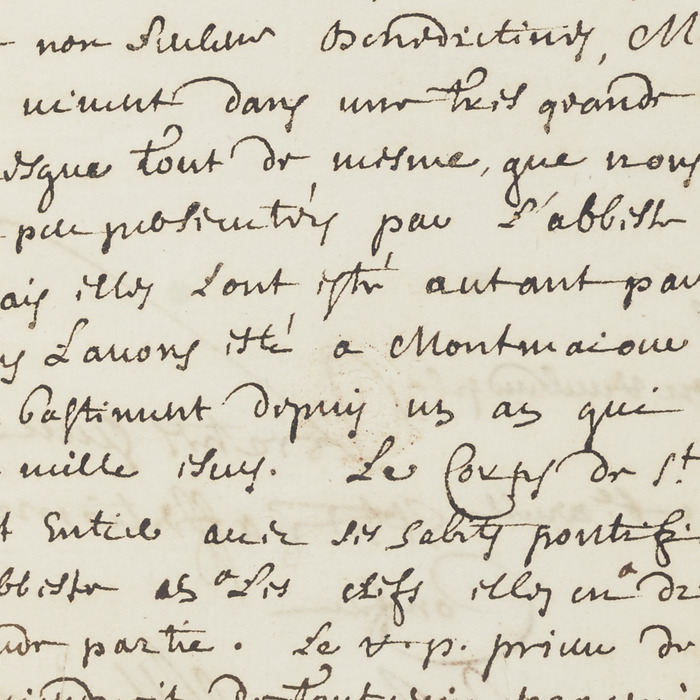 non seulemt Benedictines, M
vivent dans une tres grande
esque tout de mesme, que nous
peu presentés par L'abbesse
ais elles Lont esté autant par
s Lauons esté a Montmaiour
bastiment depuis un an qui
mille escus. Le Corps de St
t Entier auec ses habits pontifi
bbesse en a Les clefs elles en a de
nde partie. Le r. p. prieur de